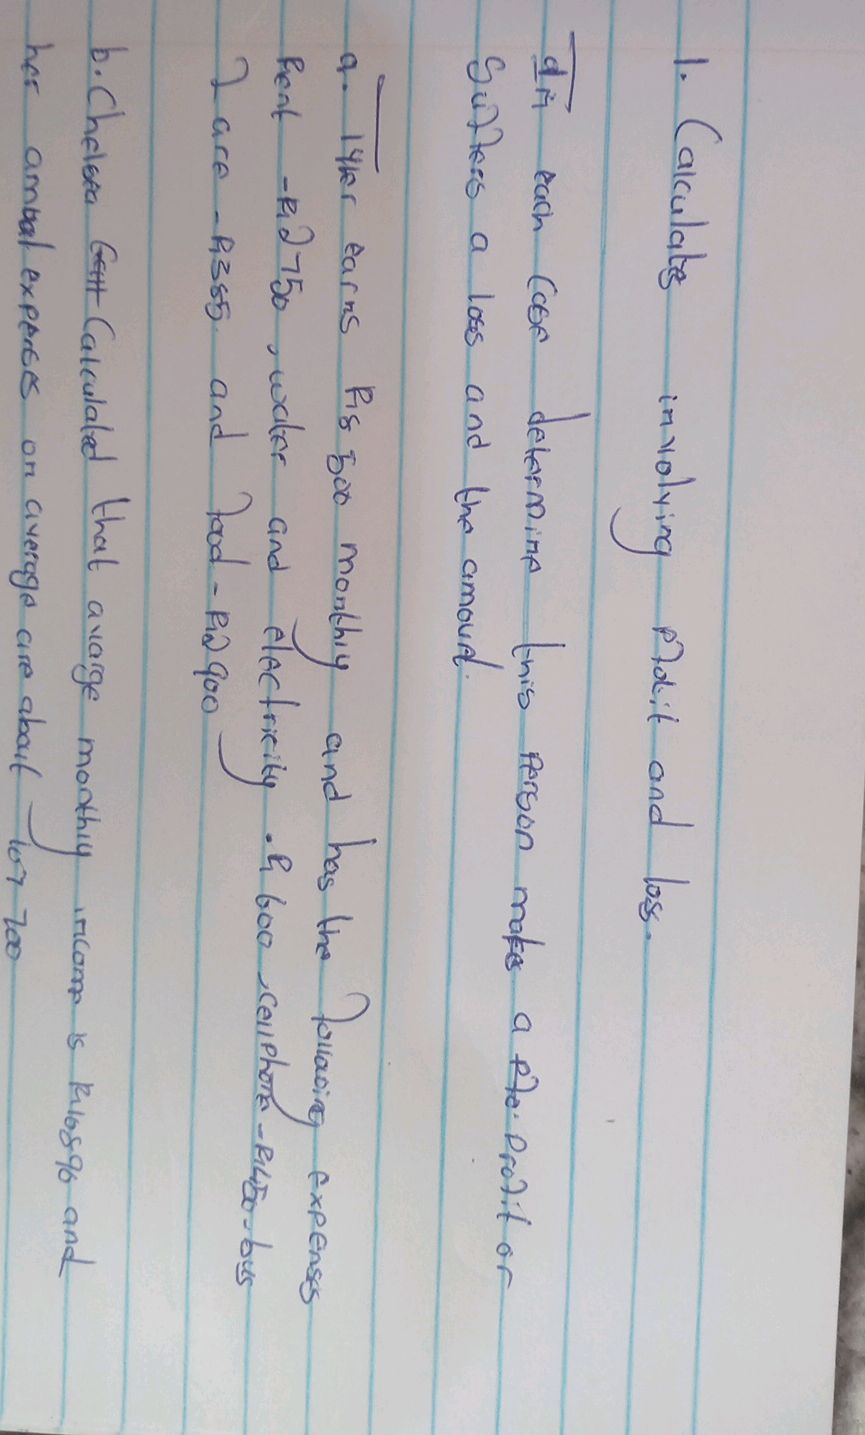 1. Calculates involving Profit and loss.
In each Case determine this Person makes a Pro. Profit or
Suffers a loss and the amount.
a. Tyler earns R8 500 monthly and has the following expenses
Rent - R2 750, water and electricity - R 600, cellphone - R450 - bus
fare - R355 and food - R2 900
b. Chelsea Calculated that avarge monthly income is R10896 and
her annual expenses on average are about 107 700